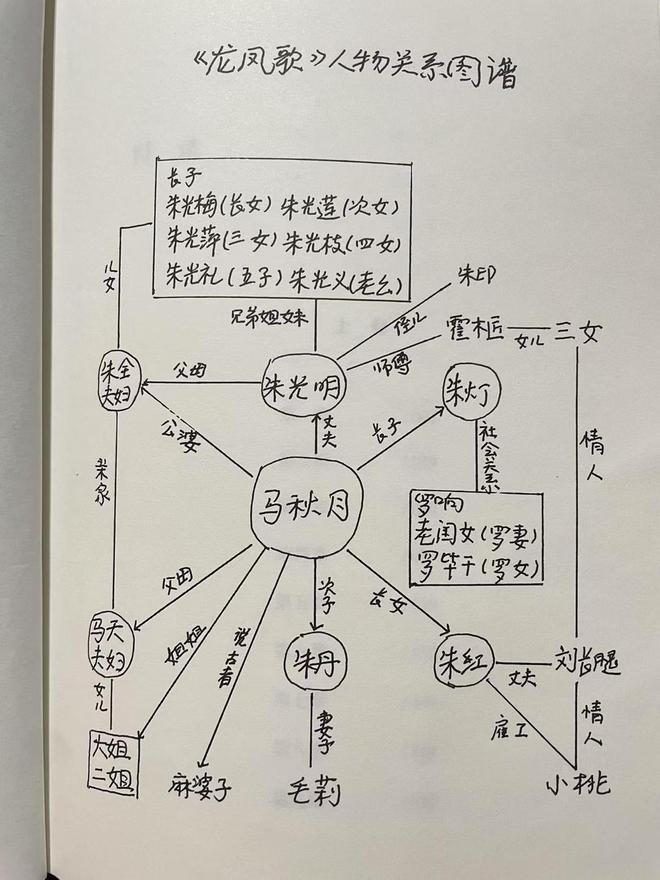 《龙凤歌》人物关系图谱
长子
朱光梅(长女) 朱光莲(次女)
朱光萍(三女) 朱光枝(四女)
朱光礼(五子) 朱光义(老幺)
儿女
兄弟姐妹
朱印
侄儿
霍框
女儿
三女
师傅
朱全
夫妇
父母
朱光明
朱灯
公婆
丈夫
长子
社会关系
情人
亲家
马秋月
罗响
老闺女(罗妻)
罗毕干(罗女)
父母
姐姐
说古者
次子
长女
马天
夫妇
朱丹
朱红
丈夫
刘肖腿
女儿
妻子
雇工
情人
大姐
二姐
麻婆子
毛莉
小桃